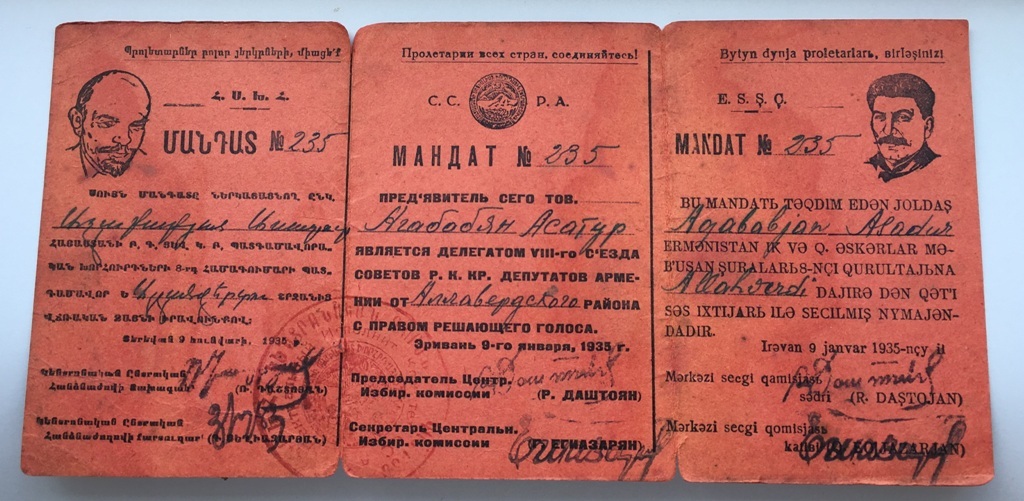 Պրոլետարներ բոլոր յերկրների, միացե՛ք
Հ. Ս. Խ. Հ.
ՄԱՆԴԱՏ № 235
ՍՈՒՅՆ ՄԱՆԴԱՏԸ ՆԵՐԿԱՅԱՑՆՈՂ ԸՆԿ.
ՀԱՅԱՍՏԱՆԻ
ԿԱՆ ԽՈՐՀՈՒՐԴՆԵՐԻ 8-րդ ՀԱՄԱԳՈՒՄԱՐԻ ՊԱՏ-
ԳԱՄԱՎՈՐ Ե ՇՐՋԱՆԻՑ
ՎՃՌԱԿԱՆ ՁԱՅՆԻ ԻՐԱՎՈՒՆՔՈՎ:
Յերեվան 9 հունվարի, 1935 թ.
Կենտրոնական Ընտրական
Հանձնաժողվի Նախագահ (Ռ. ԴԱՇՏՈՅԱՆ)
Կենտրոնական Ընտրական
Հանձնաժողվի քարտուղար
Пролетарии всех стран, соединяйтесь!
С. С. Р. А.
МАНДАТ № 235
ПРЕД'ЯВИТЕЛЬ СЕГО ТОВ.
Агабабян Асатур
ЯВЛЯЕТСЯ ДЕЛЕГАТОМ VIII-го С'ЕЗДА
СОВЕТОВ Р. К. КР. ДЕПУТАТОВ АРМЕ-
НИИ ОТ Аллавердского РАЙОНА
С ПРАВОМ РЕШАЮЩЕГО ГОЛОСА.
Эривань 9-го января, 1935 г.
Председатель Центр.
Избир. комиссии (Р. ДАШТОЯН)
Секретарь Центральн.
Избир. комиссии ЕГИАЗАРЯН)
Bytyn dynja proletarlarь, birləşinizi
E. S. Ş. Ç.
MANDAT № 235
BU MANDATЬ TƏQDIM EDƏN JOLDAŞ
Aqababjan Asadur
ERMƏNISTAN IK VƏ Q. ƏSKƏRLAR MƏB-
'USAN ŞURALARЬ 8-NÇI QURULTAJЬNA
Allahverdi DAJIRƏ DƏN QƏT'I
SƏS IXTIJARЬ ILƏ SECILMIŞ NYMAJƏN-
DADIR.
Irəvan 9 janvar 1935-nçy il
Mərkəzi secgi qamisjasь
sədri (R. DAŞTOJAN)
Mərkəzi secgi qomisjasь